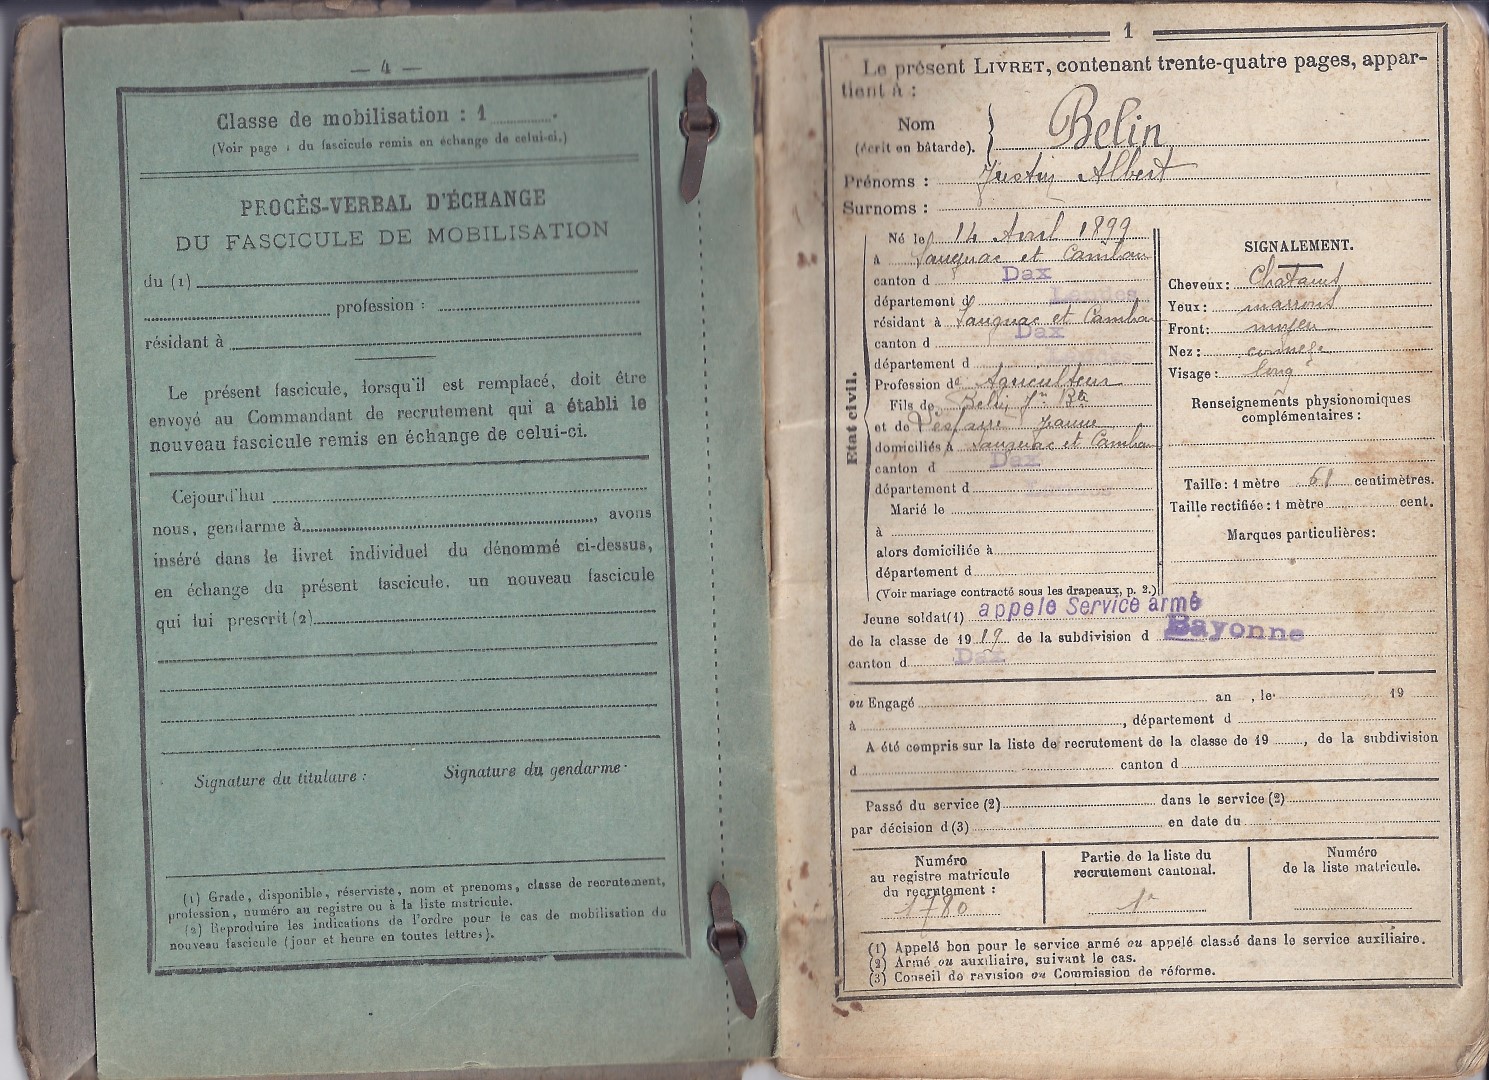 — 4 —
Classe de mobilisation : 1
(Voir page 1 du fascicule remis en échange de celui-ci.)
PROCÈS-VERBAL D'ÉCHANGE
DU FASCICULE DE MOBILISATION
du (1)
profession :
résidant à
Le présent fascicule, lorsqu'il est remplacé, doit être
envoyé au Commandant de recrutement qui a établi le
nouveau fascicule remis en échange de celui-ci.
Cejourd'hui
nous, gendarme à , avons
inséré dans le livret individuel du dénommé ci-dessus,
en échange du présent fascicule, un nouveau fascicule
qui lui prescrit (2)
Signature du titulaire :
Signature du gendarme
(1) Grade, disponible, réserviste, nom et prenoms, classe de recrutement,
profession, numéro au registre ou à la liste matricule.
(2) Reproduire les indications de l'ordre pour le cas de mobilisation du
nouveau fascicule (jour et heure en toutes lettres).
1
Le présent LIVRET, contenant trente-quatre pages, appar-
tient à :
Nom Belin
(écrit en bâtarde).
Prénoms : Justin Albert
Surnoms :
Etat civil.
Né le 14 Avril 1899
à Saugnac et Camban
canton d Dax
département d Landes
résidant à Saugnac et Camban
canton d Dax
département d Landes
Profession de Agriculteur
Fils de Belin Jn Bte
et de Jeanne
domiciliés à Saugnac et Camban
canton d Dax
département d Landes
Marié le
à
alors domiciliée à
département d
(Voir mariage contracté sous les drapeaux, p. 2.)
SIGNALEMENT.
Cheveux : Chatains
Yeux : marrons
Front : moyen
Nez :
Visage : long
Renseignements physionomiques
complémentaires :
Taille : 1 mètre 61 centimètres.
Taille rectifiée : 1 mètre cent.
Marques particulières :
Jeune soldat (1) appelé Service armé
de la classe de 19 19 de la subdivision d Bayonne
canton d Dax
ou Engagé an , le 19
à , département d
A été compris sur la liste de recrutement de la classe de 19 , de la subdivision
d canton d
Passé du service (2) dans le service (2)
par décision d (3) en date du
Numéro
au registre matricule
du recrutement :
1780
Partie de la liste du
recrutement cantonal.
1e
Numéro
de la liste matricule.
(1) Appelé bon pour le service armé ou appelé classé dans le service auxiliaire.
(2) Armé ou auxiliaire, suivant le cas.
(3) Conseil de revision ou Commission de réforme.